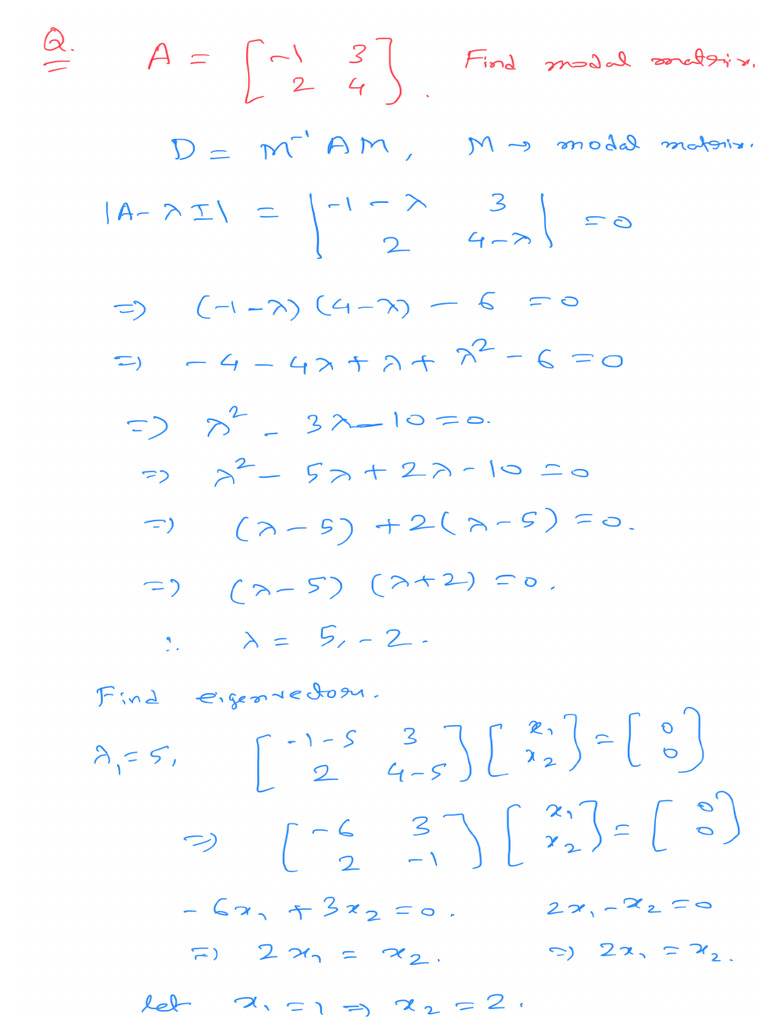 Q. A = [-1 3; 2 4]. Find modal matrix.
D = M⁻¹AM, M → modal matrix.
|A-λI| = |-1-λ 3; 2 4-λ| = 0
⇒ (-1-λ)(4-λ) - 6 = 0
⇒ -4 - 4λ + λ + λ² - 6 = 0
⇒ λ² - 3λ - 10 = 0.
⇒ λ² - 5λ + 2λ - 10 = 0
⇒ (λ-5) + 2(λ-5) = 0.
⇒ (λ-5) (λ+2) = 0.
∴ λ = 5, -2.
Find eigenvectors.
λ₁ = 5, [-1-5 3; 2 4-5] [x₁; x₂] = [0; 0]
⇒ [-6 3; 2 -1] [x₁; x₂] = [0; 0]
-6x₁ + 3x₂ = 0. 2x₁ - x₂ = 0
⇒ 2x₁ = x₂. ⇒ 2x₁ = x₂.
let x₁ = 1 ⇒ x₂ = 2.